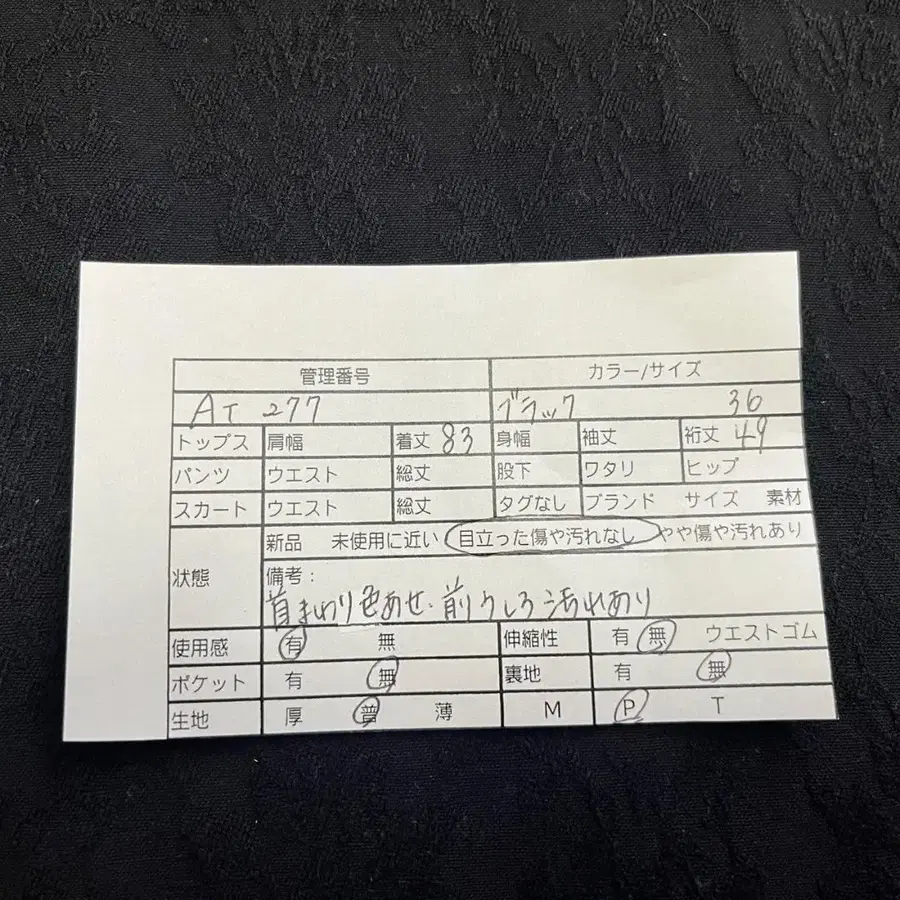 管理番号 カラー/サイズ
AT 277 ブラック 36
トップス 肩幅 着丈 83 身幅 袖丈 裄丈 49
パンツ ウエスト 総丈 股下 ワタリ ヒップ
スカート ウエスト 総丈 タグなし ブランド サイズ 素材
状態 新品 未使用に近い 目立った傷や汚れなし やや傷や汚れあり
備考：
首まわり色あせ・前うしろ汚れあり
使用感 有 無 伸縮性 有 無 ウエストゴム
ポケット 有 無 裏地 有 無
生地 厚 普 薄 M P T